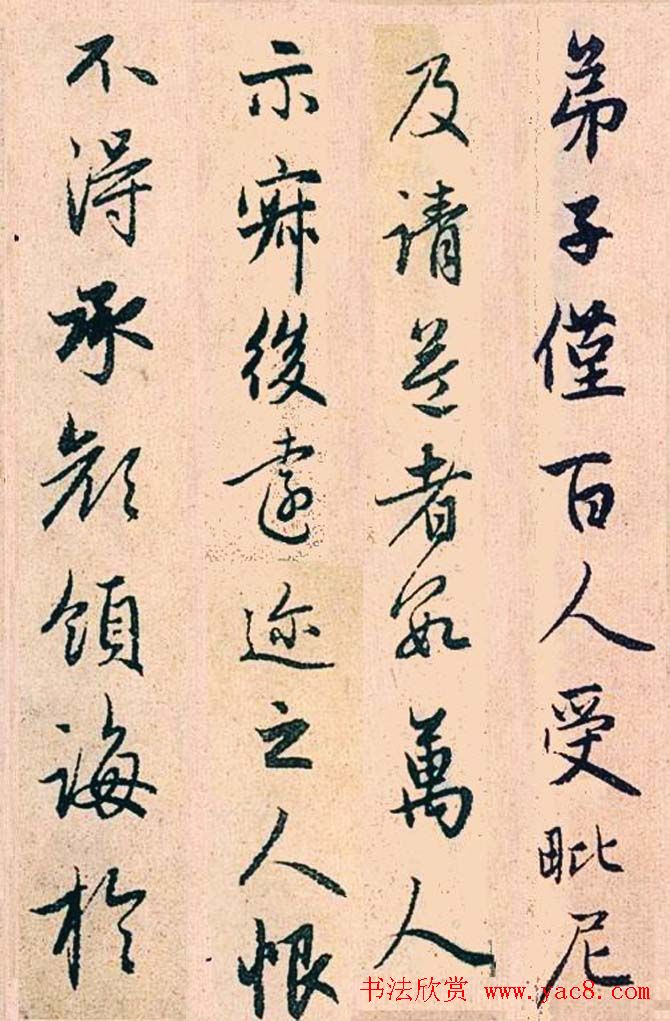 弟子僅百人受毗尼
及請益者數萬人
示寂後遠迩之人恨
不得承顔領誨於
书法欣赏 www.yac8.com